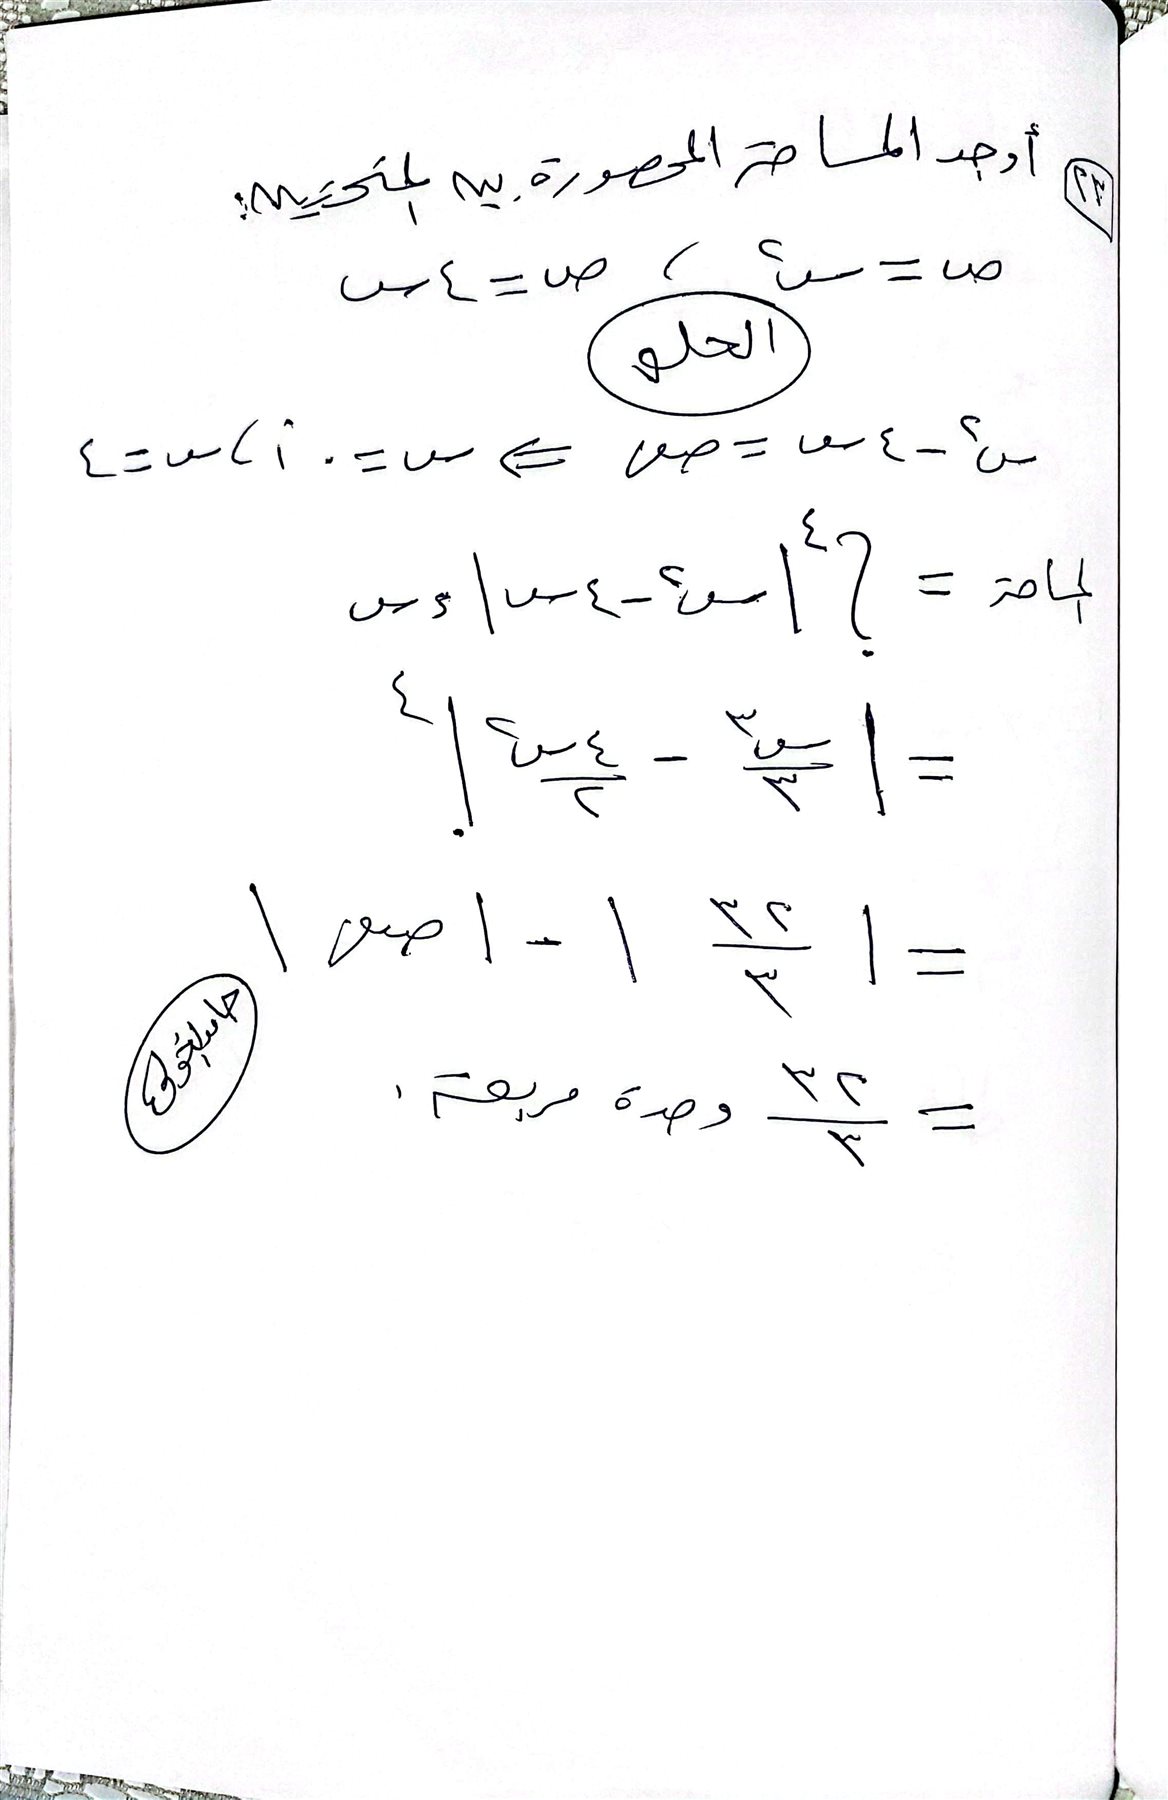 ٢٢ أوجد المساحة المحصورة بين المنحنيين:
ص = س٢ ، ص = ٤س
الحلو
س٢ - ٤س = صفر ⇐ س = ٠ أ، س = ٤
المساحة = ∫٠٤ |س٢ - ٤س| ءس
= | س٣/٣ - ٤س٢/٢ |٠٤
= | ٣٢/٣ | - | صفر |
= ٣٢/٣ وحدة مربعة.